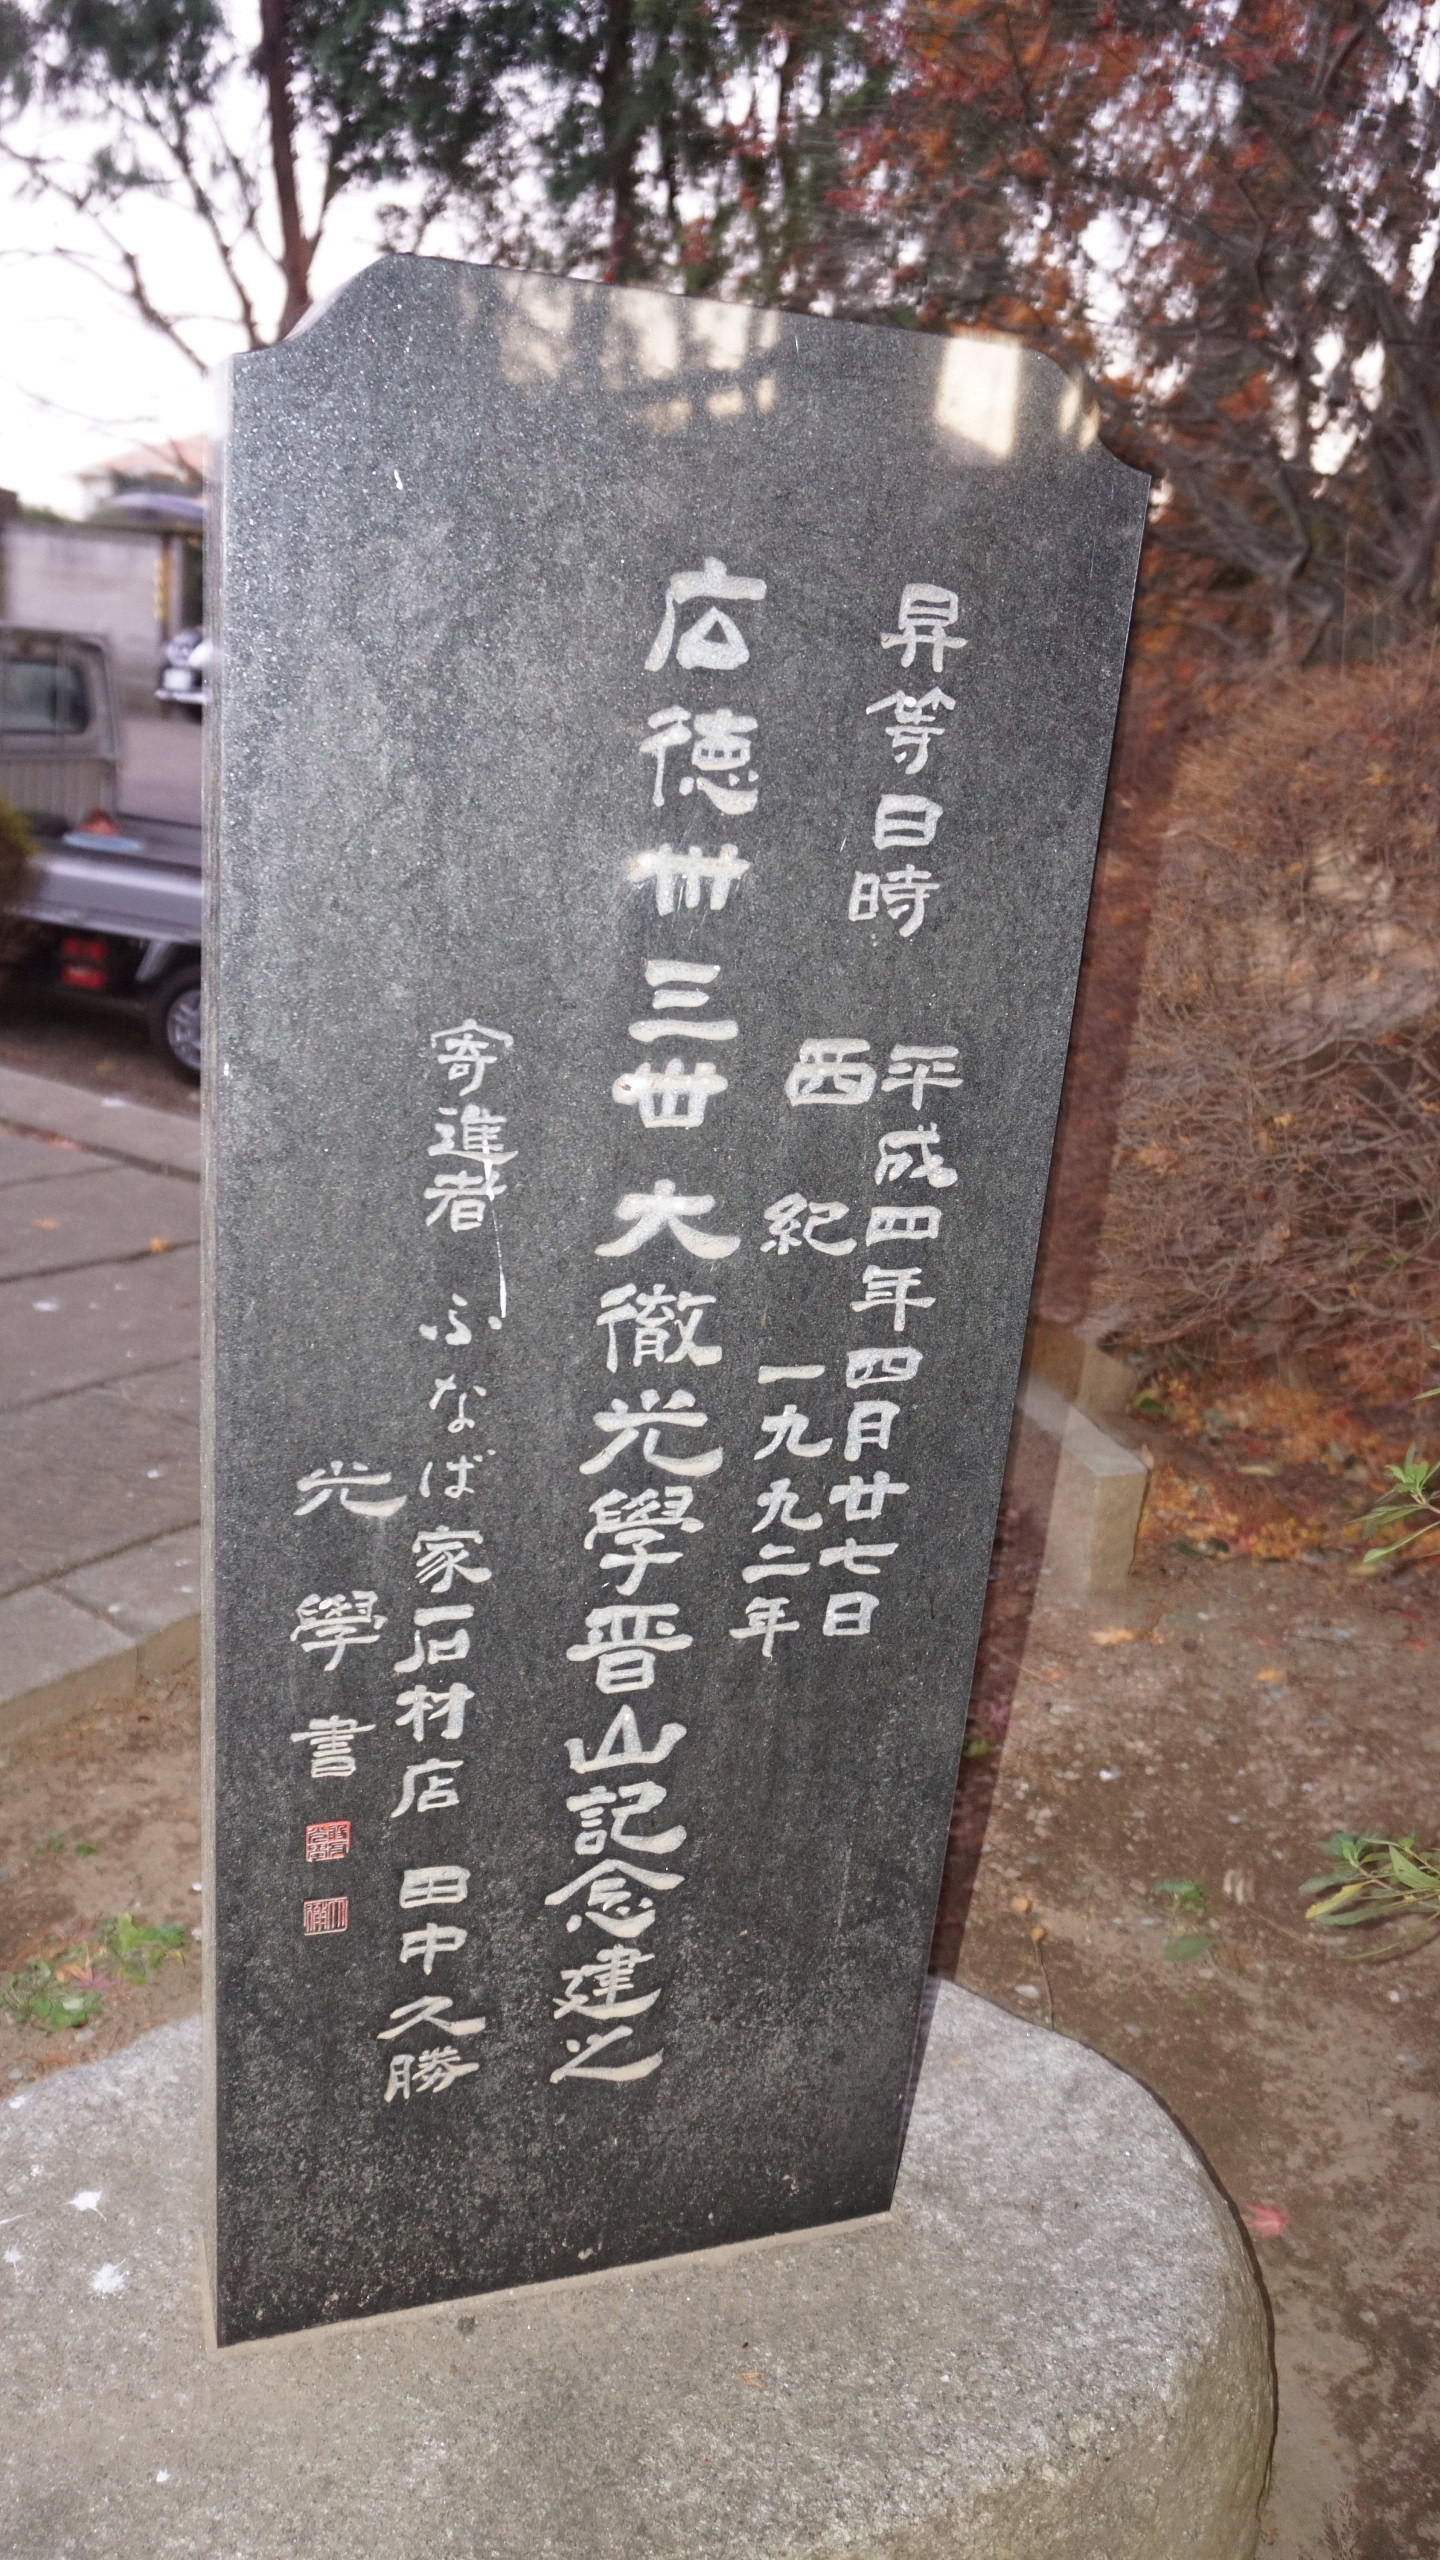 昇等日時
平成四年四月廿七日
西紀一九九二年
広徳卅三世大徹光學晋山記念建之
寄進者 ふなば家石材店 田中久勝
光學書